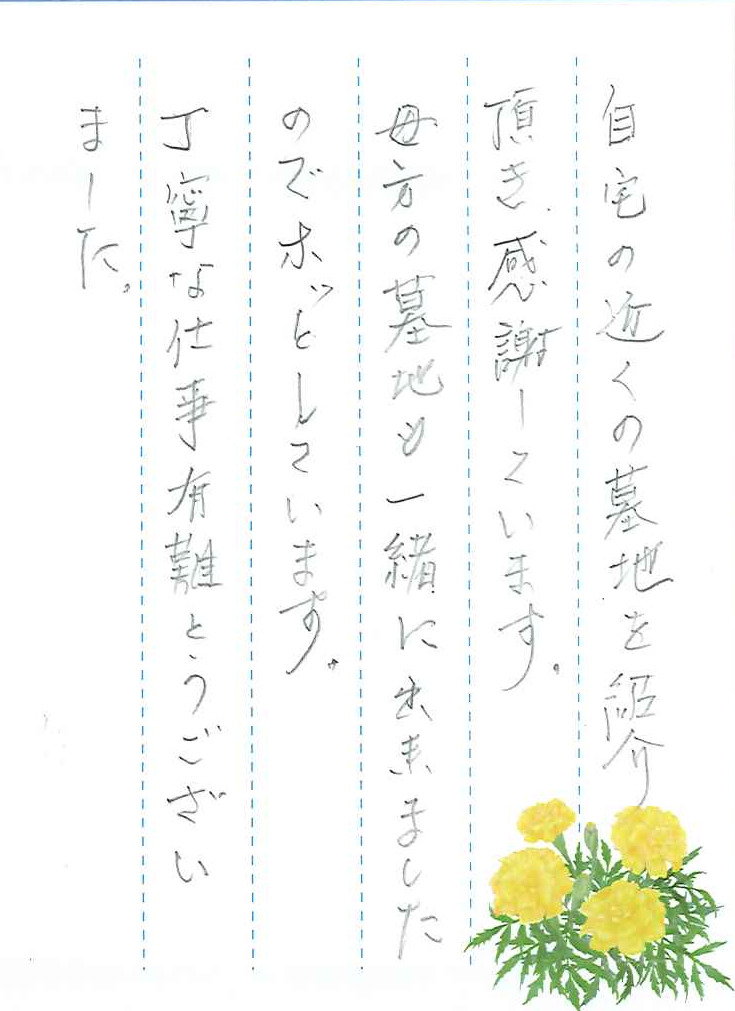 自宅の近くの墓地を紹介
頂き、感謝しています。
母方の墓地も一緒に出来ました
のでホッとしています。
丁寧な仕事有難とうござい
ました。